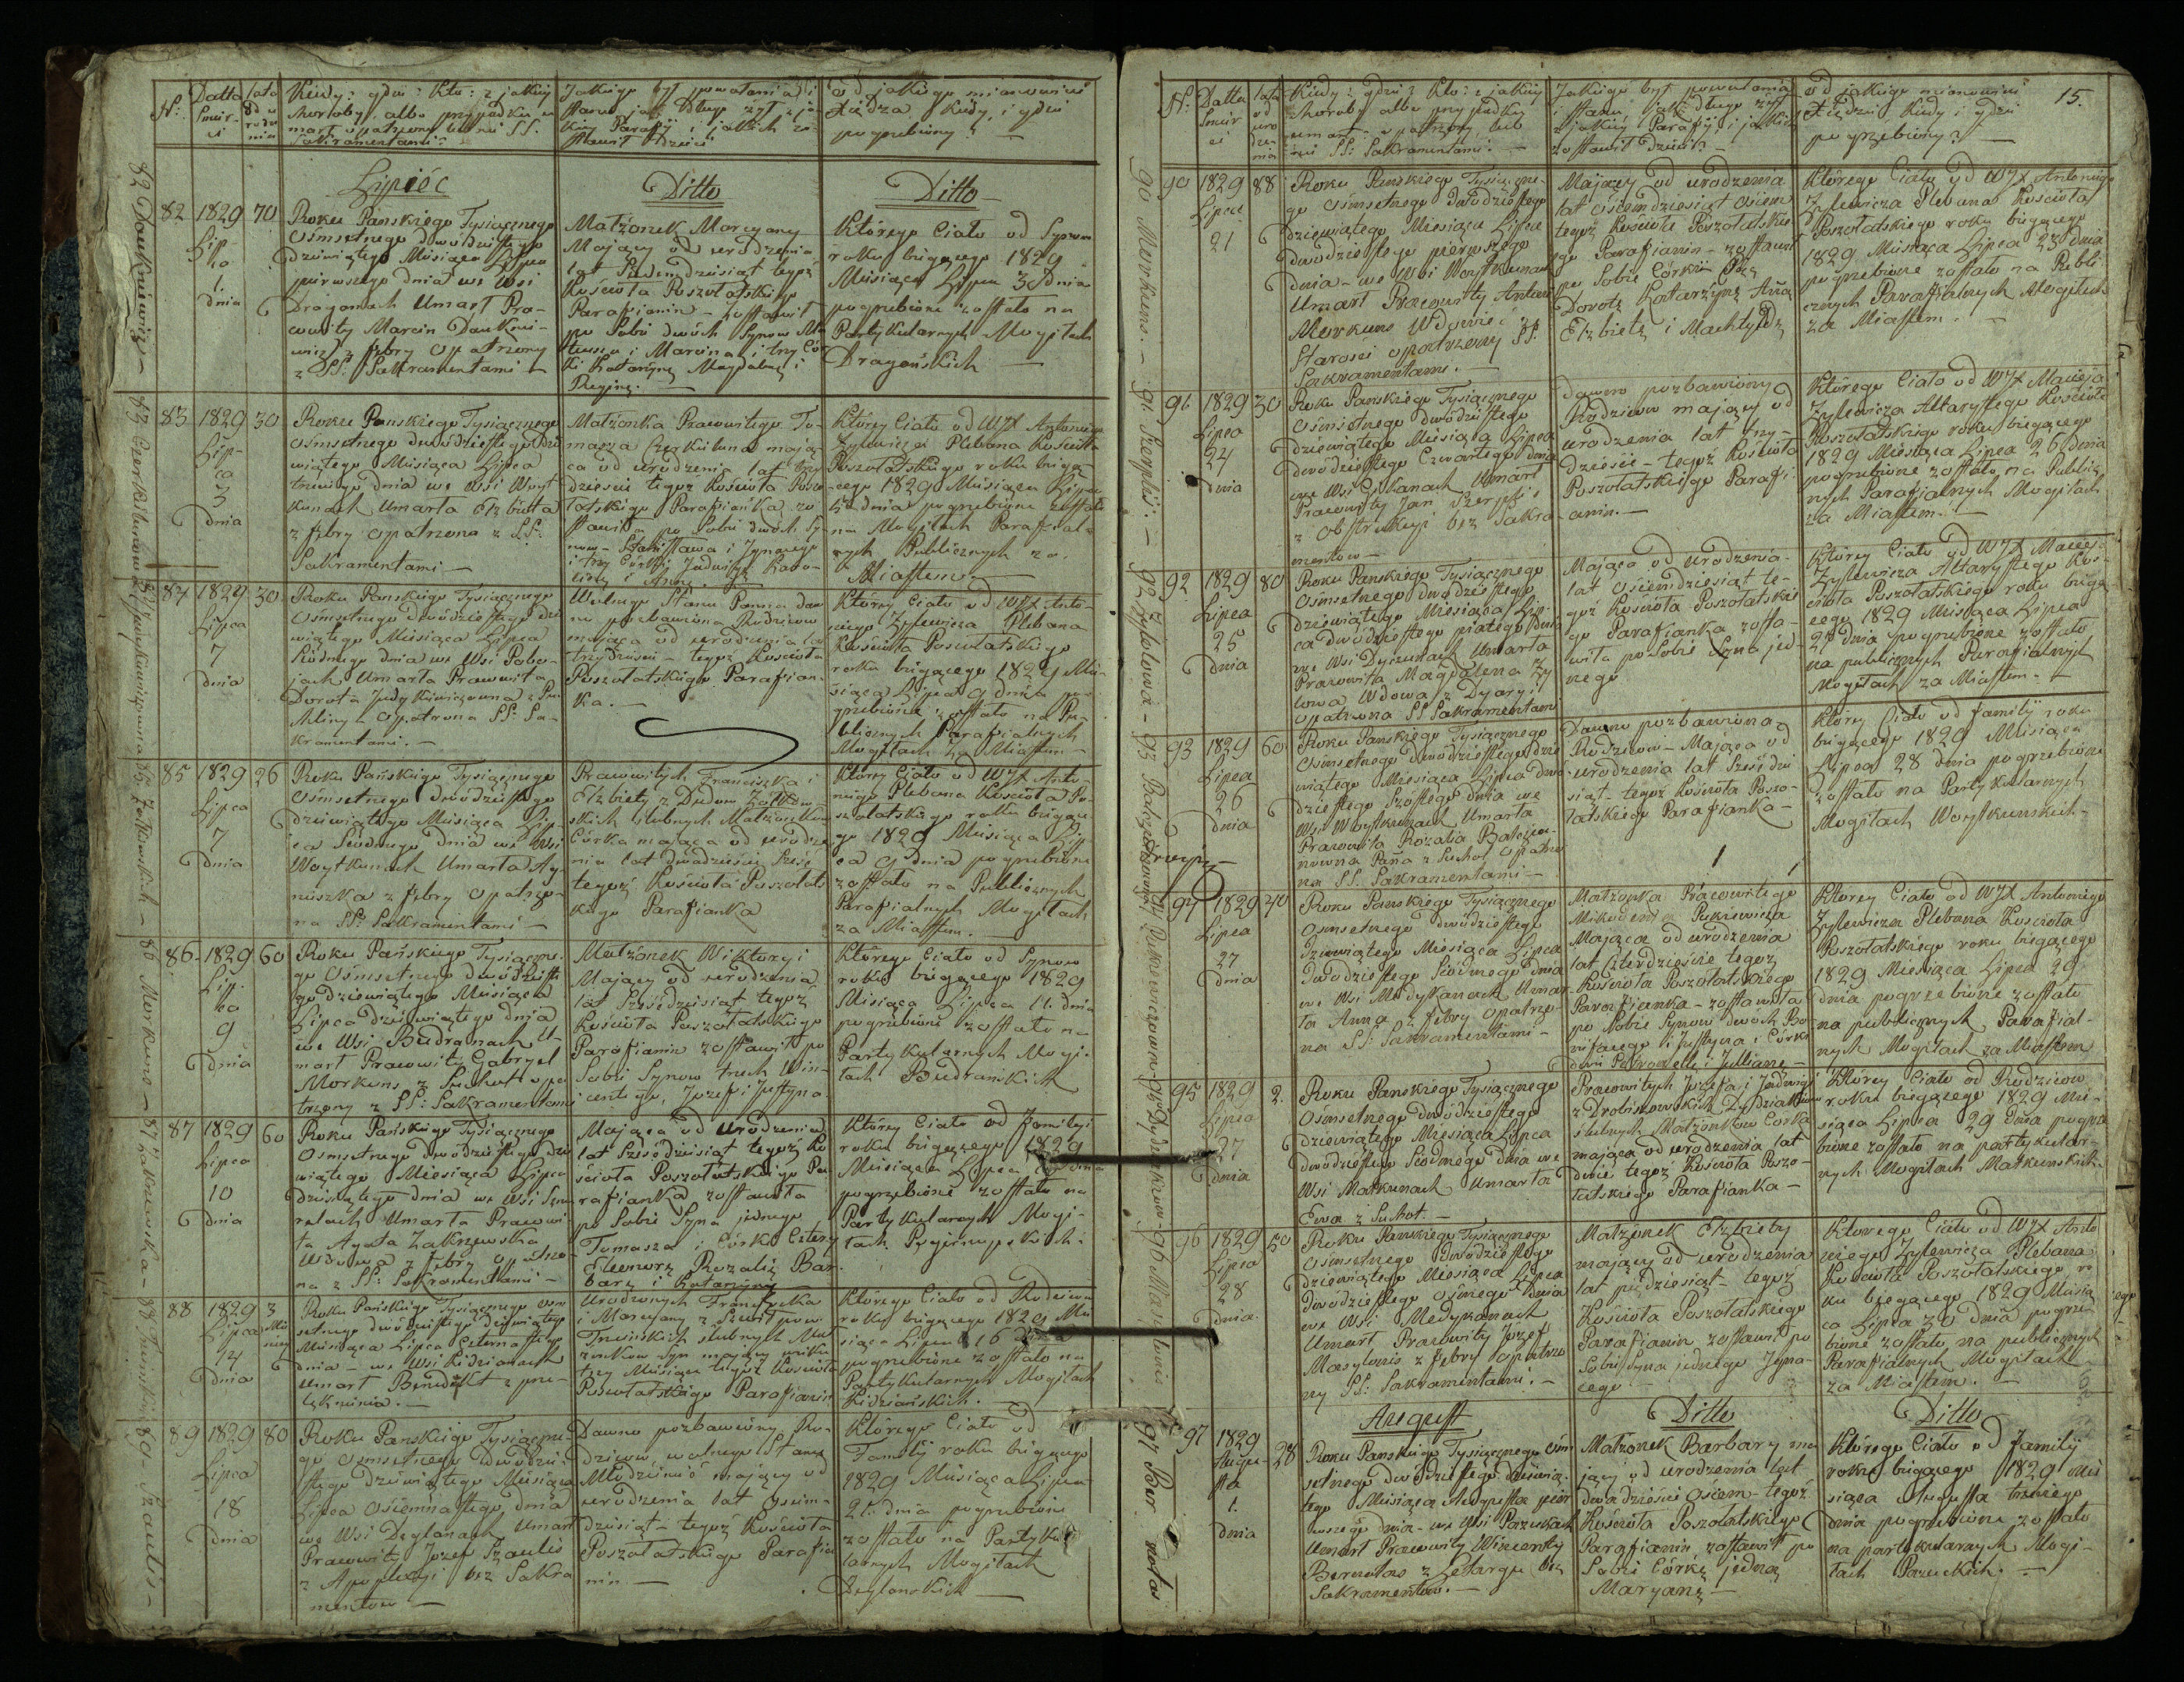 N:
Datta
Smir-
ci
lata
od u
rodze
nia
Kiedy? gdzie? Kto? z jakiéy
choroby, albo przypadku u
marł opatrzony lub nié SS.
Sakramentami?
Jakiego był powołania i
stanu, jak długo żył z ja
kiéy Parafij i jakich zo-
stawił dzieci
od jakiego mianowicie
Xiędza kiedy, i gdzie
pogrzebiony?
Lipiéc
Ditto
Ditto
82 Daukniewicz
82
1829
Lip
ca
1.
dnia
70
Roku Pańskiego Tysiącznego
Ośmsetnego dwódziestego
dziewiątego Miesiąca Lipca
pierwszego dnia we Wsi
Draganach Umarł Pra-
cowity Marcin Dauknie-
wicz z febry opatrzony
z SS: Sakramentami
Małżonek Maryany
Mający od urodzenia
lat Siedmdziesiąt tegoż
Kościoła Poszołatskiego
Parafianin - zostawił
po Sobie dwóch Synow Ma
teusza i Marcina i trzy Cór
ki Katarzynę Magdalenę i
Reginę.
Którego Ciało od Synow
roku bieżącego 1829
Miesiąca Lipca 3 dnia
pogrzebione zostało na
Partykularnych Mogiłach
Dragańskich
83
1829
Lip-
ca
3
dnia
30
Roku Panskiego Tysiącznego
Ośmsetnego dwódziestego dzie
wiątego Miesiąca Lipca
trzeciego dnia we Wsi Woyt
kunach Umarła Elżbieta
z febry opatrzona z SS:
Sakramentami
Małżonka Pracowitego To-
masza Czerkiluna mają
ca od urodzenia lat trzy
dziesci tegoż Kościoła Poszo
łatskiego Parafianka zo
stawiła po Sobie dwóch Sy-
now Stanisława i Jgnacego
i trzy Córki Jadwigę Karo-
linę i Annę.
Którey Ciało od WJX Antoniego
Zylewicza Plebana Kościoła
Poszołatskiego roku bieżą
cego 1829 Miesiąca Lipca
5 dnia pogrzebione zostało
na Mogiłach Parafial-
nych Publicznych za
Miastem.
84
1829
Lipca
7
dnia
30
Roku Panskiego Tysiącznego
Ośmsetnego dwódziestego dzie
wiątego Miesiąca Lipca
Siódmego dnia we Wsi Pobo-
jach Umarła Pracowita
Dorota z Pu
chliny - opatrzona SS: Sa-
kramentami.
Wolnego Stanu Panna daw
no pozbawiona Rodzicow
mająca od urodzenia lat
trzydziesci - tegoż Kościoła
Poszołatskiego Parafian-
ka.
Którey Ciało od WJX Anto-
niego Zylewicza Plebana
Kościoła Poszołatskiego
roku bieżącego 1829 Mie-
siąca Lipca 9 dnia po-
grzebione zostało na Pu-
blicznych Parafialnych
Mogiłach za Miastem
85
1829
Lipca
7
dnia
26
Roku Pańskiego Tysiącznego
Ośmsetnego dwódziestego
dziewiątego Miesiąca Lip-
ca Siódmego dnia we Wsi
Woytkunach Umarła Ag-
nieszka z febry opatrzo-
na SS: Sakramentami
Pracowitych Franciszka i
Elżbiety z Dudow Żołkow
skich slubnych Małżonkow
Córka mająca od urodze
nia lat dwadzieścia Sześć
tegoż Kościoła Poszołats
kiego Parafianka
Którey Ciało od WJX Anto-
niego Plebana Kościoła Po-
szołatskiego roku bieżące-
go 1829 Miesiąca Lip
ca 9 dnia pogrzebione
zostało na Publicznych
Parafialnych Mogiłach
za Miastem.
86 Morkuno
86
1829
Lip-
ca
9
dnia
60
Roku Pańskiego Tysiączne-
go Ośmsetnego dwódzieste
go dziewiątego Miesiąca
Lipca dziewiątego dnia
we Wsi Budranach U-
marł Pracowity Gabryel
Morkuns z Suchot opa
trzony z SS: Sakramentami
Małżonek Wiktoryi
Mający od urodzenia
lat Sześćdziesiąt tegoż
Kościoła Poszołatskiego
Parafianin zostawił po
Sobie Synow trzech Win-
centego, Jozef. i Justyna
Którego Ciało od Synow
roku bieżącego 1829
Miesiąca Lipca 11. dnia
pogrzebione zostało na
Partykularnych Mogi-
łach Budrańskich
87 Zakrzewska
87
1829
Lipca
10
dnia
60
Roku Pańskiego Tysiącznego
Ośmsetnego dwódziestego dzie
wiątego Miesiąca Lipca
dziesiątego dnia we Wsi
Umarła Pracowi
ta Agata Zakrzewska
Wdowa z febry opatrzo-
na z SS: Sakramentami
Mająca od urodzenia
lat Sześćdziesiąt tegoż Ko
ścioła Poszołatskiego Pa-
rafianka zostawiła
po Sobie Syna jednego
Tomasza i Córki Cztery
Eleonorę Rozalię Bar-
barę i Katarzynę
Którey Ciało od Familyi
roku bieżącego 1829
Miesiąca Lipca dnia
pogrzebione zostało na
Partykularnych Mogi-
łach
88
1829
Lipca
14
dnia
3
Mie
sięcy
Roku Pańskiego Tysiącznego ośm
setnego dwódziestego dziewiątego
Miesiąca Lipca Czternastego
dnia - we Wsi Kidzianach
Umarł Benedykt z prze-
lęknienia.
Urodzonych Franciszka
i Maryany z
slubnych Mał
żonkow Syn mający wieku
trzy Miesiące tegoż Kościoła
Poszołatskiego Parafianin
Którego Ciało od Rodzicow
roku bieżącego 1829 Mie
siąca Lipca 16 dnia
pogrzebione zostało na
Partykularnych Mogiłach
Kidziańskich.
89 Szaulis
89
1829
Lipca
18
dnia
80
Roku Panskiego Tysiączne-
go Ośmsetnego dwódzie-
stego dziewiątego Miesiąca
Lipca Ośiemnastego dnia
we Wsi Deglanach Umarł
Pracowity Jozef Szaulis
z Apoplexyi bez Sakra
mentow
Dawno pozbawiony Ro-
dzicow, wolnego Stanu
Młodzienić mający od
urodzenia lat Osiem-
dziesiąt - tegoż Kościoła
Poszołatskiego Parafia
nin
Którego Ciało od
Familij roku bieżącego
1829 Miesiąca Lipca
21. dnia pogrzebione
zostało na Partyku
larnych Mogiłach
Deglanskich
N:
Datta
Smir
ci
lata
od
uro
dze-
nia
Kiedy? gdzie? Kto? z jakiéy
choroby albo przypadku
umarł opatrzony, lub
nié SS: Sakramentami?
Jakiego był powołania
i stanu, jak długo żył
z jakiéy Parafij i jakich
zostawił dzieci?
od jakiego mianowicie
Xiędza kiedy i gdzie
pogrzebiony?
15.
90 Merkuns.
90
1829
Lipca
21
88
Roku Panskiego Tysiączne-
go Ośmsetnego dwódziestego
dziewiątego Miesiąca Lipca
dwódziestego pierwszego
dnia - we Wsi Woytkunach
Umarł Pracowity Antoni
Merkuns Wdowiec z
Starości opatrzony SS:
Sakramentami.
Mający od urodzenia
lat Ośiemdziesiąt Ośiem
tegoż Kościoła Poszołatskie
go Parafianin - zostawił
po Sobie Córki
Dorotę Katarzynę Annę
Elżbietę i Machtyldę
Którego Ciało od WJX Antoniego
Zylewicza Plebana Kościoła
Poszołatskiego roku bieżącego
1829 Miesiąca Lipca 23 dnia
pogrzebione zostało na Publi
cznych Parafialnych Mogiłach
za Miastem.
91
1829
Lipca
24
dnia
30
Roku Pańskiego Tysiącznego
Ośmsetnego dwódziestego
dziewiątego Miesiąca Lipca
dwódziestego Czwartego dnia
we Wsi Umarł
Pracowity Jan
z Obstrukcyi bez Sakra-
mentow
Dawno pozbawiony
Rodzicow mający od
urodzenia lat trzy-
dzieści - tegoż Kościoła
Poszołatskiego Parafi-
anin.
Którego Ciało od WJX Macieja
Zylewicza Altarystego Kościoła
Poszołatskiego roku bieżącego
1829 Miesiąca Lipca 26 dnia
pogrzebione zostało na Publicz
nych Parafialnych Mogiłach
za Miastem.
92
1829
Lipca
25
dnia
80
Roku Panskiego Tysiącznego
Ośmsetnego dwódziestego
dziewiątego Miesiąca Lip-
ca dwódziestego piątego dnia
we Wsi Umarła
Pracowita Magdalena Zy
łowa Wdowa z Dyaryi
opatrzona SS Sakramentami
Mająca od urodzenia
lat Ośiemdziesiąt te-
goż Kościoła Poszołatskie
go Parafianka zosta-
wiła po Sobie Syna jed-
nego
Którey Ciało od WJX Macieja
Zylewicza Altarystego Koś-
cioła Poszołatskiego roku bieżą
cego 1829 Miesiąca Lipca
27 dnia pogrzebione zostało
na publicznych Parafialnych
Mogiłach za Miastem.
93
1829
Lipca
26
dnia
60
Roku Panskiego Tysiącznego
Ośmsetnego dwódziestego dzie
wiątego Miesiąca Lipca dwó-
dziestego Szóstego dnia we
Wsi Woytkunach Umarła
Pracowita Rozalia
Panna z Suchot opatrzo
na SS. Sakramentami
Dawno pozbawiona
Rodzicow - Mająca od
urodzenia lat Sześćdzie
siąt - tegoż Kościoła Poszo-
łatskiego Parafianka
Którey Ciało od familij roku
bieżącego 1829 Miesiąca
Lipca 28 dnia pogrzebione
zostało na Partykularnych
Mogiłach Woytkunskich
94
1829
Lipca
27
dnia
40
Roku Panskiego Tysiącznego
Ośmsetnego dwódziestego
dziewiątego Miesiąca Lipca
dwódziestego Siódmego dnia
we Wsi Medykanach Umar-
ła Anna z febry opatrzo-
na SS: Sakramentami
Małżonka Pracowitego
Nikodema
Mająca od urodzenia
lat Czterdzieście tegoż
Kościoła Poszołatskiego
Parafianka - zostawiła
po Sobie Synow dwóch Bo-
nifacego i Justyna i Córki
dwie Petronellę i Jullianę
Którey Ciało od WJX Antoniego
Zylewicza Plebana Kościoła
Poszołatskiego roku bieżącego
1829 Miesiąca Lipca 29
dnia pogrzebione zostało
na publicznych Parafial-
nych Mogiłach za Miastem
95
1829
Lipca
27
dnia
2.
Roku Panskiego Tysiącznego
Ośmsetnego dwódziestego
dziewiątego Miesiąca Lipca
dwódziestego Siódmego dnia we
Wsi Matkunach Umarła
Ewa z Suchot
Pracowitych Jozefa i Jadwigi
z
slubnych Małżonkow Corka
mająca od urodzenia lat
dwie tegoż Kościoła Poszo-
łatskiego Parafianka
Którey Ciało od Rodzicow
roku bieżącego 1829 Mie-
siąca Lipca 29 dnia pogrze
bione zostało na partykular-
nych Mogiłach Matkunskich
96
1829
Lipca
28
dnia
50
Roku Panskiego Tysiącznego
Ośmsetnego dwódziestego
dziewiątego Miesiąca Lipca
dwódziestego Osmego dnia
we Wsi Medykanach
Umarł Pracowity Jozef
z febry opatrzo
ny SS: Sakramentami.
Małżonek Elżbiety
mający od urodzenia
lat pięćdziesiąt - tegoż
Kościoła Poszołatskiego
Parafianin zostawił po
Sobie Syna jednego Jgna-
cego
Którego Ciało od WJX Anto
niego Zylewicza Plebana
Kościoła Poszołatskiego ro
ku bieżącego 1829 Miesią
ca Lipca 30 dnia pogrze
bione zostało na publicznych
Parafialnych Mogiłach
za Miastem.
August
Ditto
Ditto
97
1829
Augu-
sta
1.
dnia
28
Roku Panskiego Tysiącznego Ośm
setnego dwódziestego dziewią-
tego Miesiąca Augusta pier
wszego dnia - we Wsi
Umarł Pracowity Wincenty
z Letargu bez
Sakramentow.
Małżonek Barbary ma
jący od urodzenia lat
dwadzieści Osiem - tegoż
Kościoła Poszołatskiego
Parafianin zostawił po
Sobie Córkę jedną
Maryanę
Którego Ciało od familij
roku bieżącego 1829 Mie
siąca Augusta trzeciego
dnia pogrzebione zostało
na partykularnych Mogi-
łach